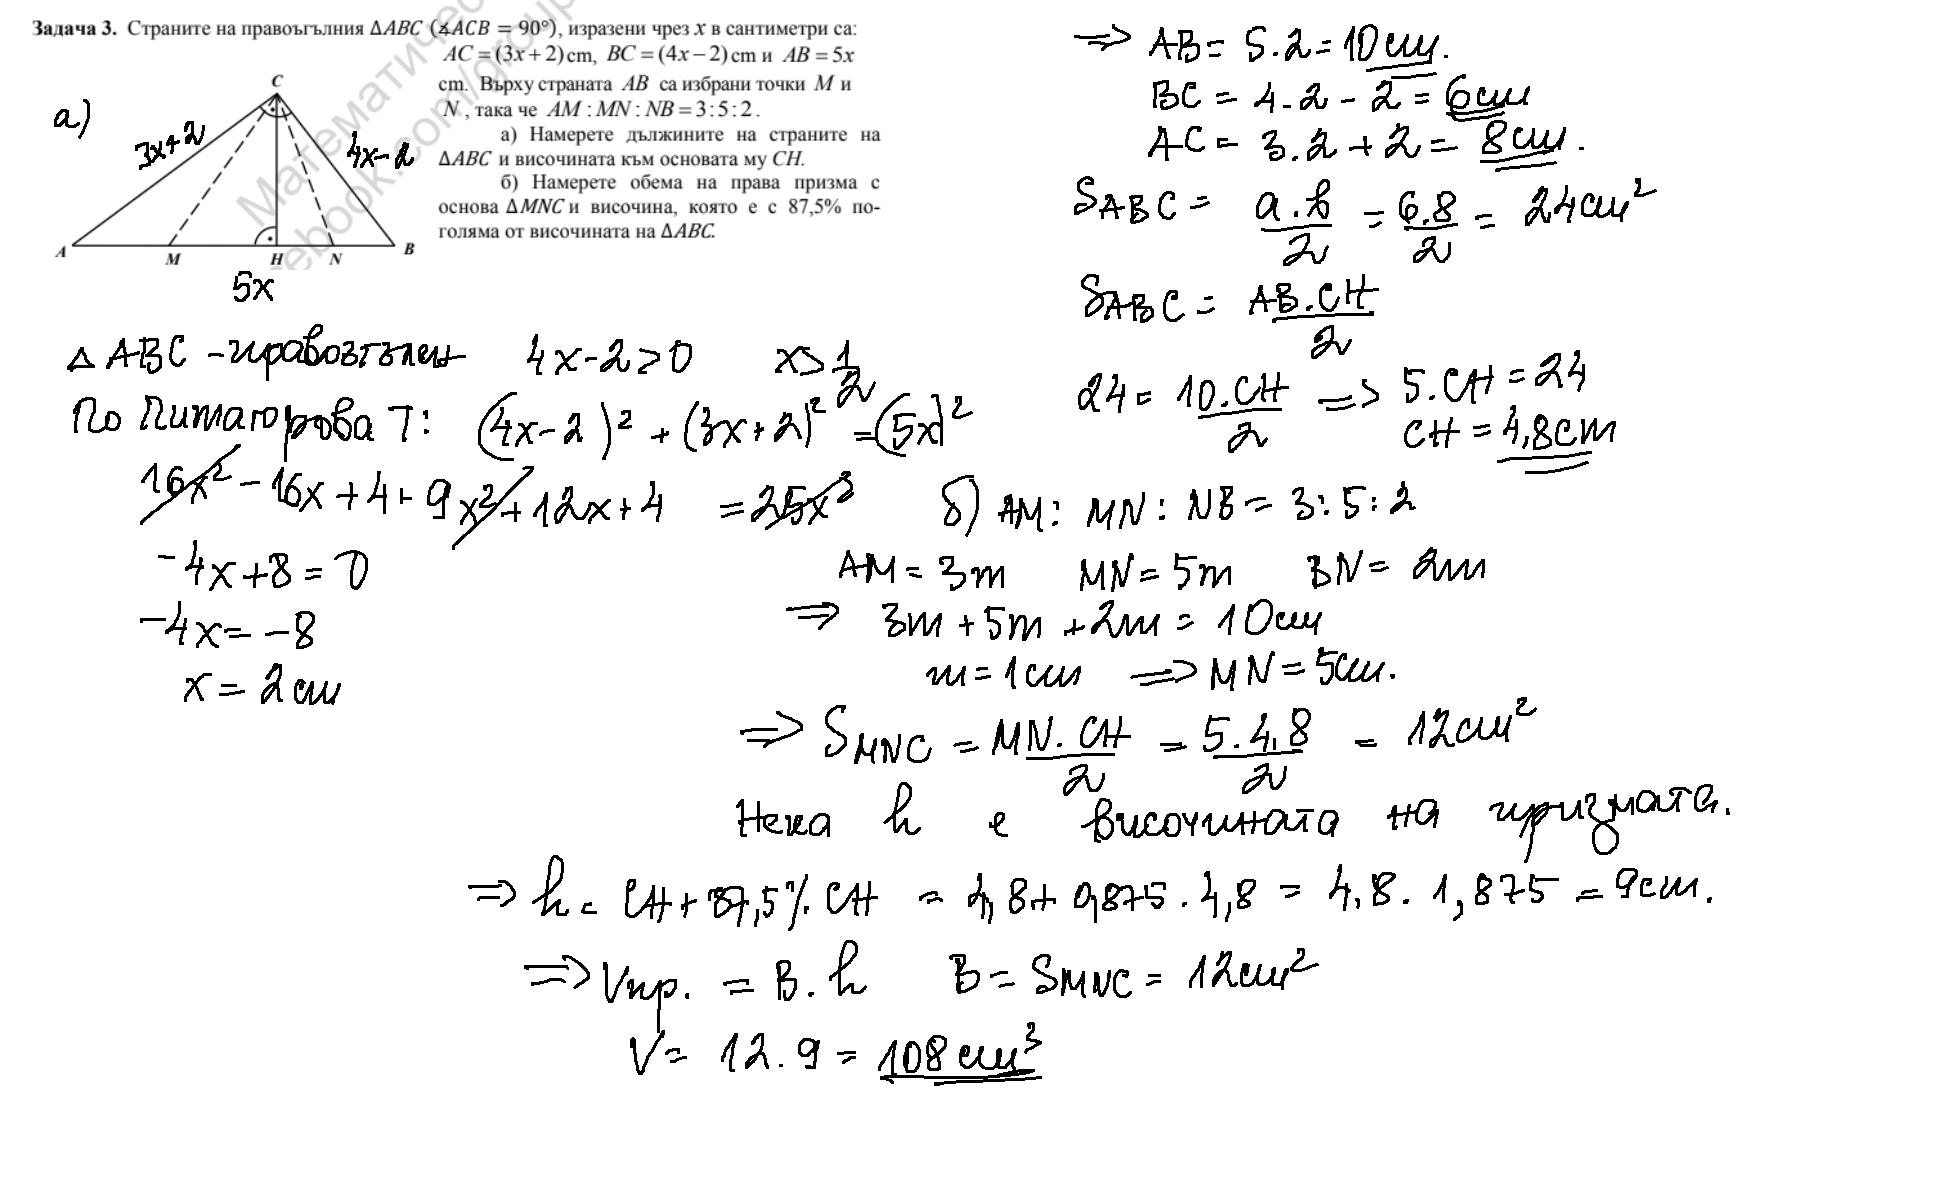 Задача 3. Страните на правоъгълния ΔABC (∢ACB = 90°), изразени чрез x в сантиметри са:
AC = (3x + 2) cm, BC = (4x − 2) cm и AB = 5x
cm. Върху страната AB са избрани точки M и
N, така че AM : MN : NB = 3 : 5 : 2.
а) Намерете дължините на страните на
ΔABC и височината към основата му CH.
б) Намерете обема на права призма с
основа ΔMNC и височина, която е с 87,5% по-
голяма от височината на ΔABC.
а)
C
3x+2
4x-2
A
M
H
N
B
5x
Δ ABC - правоъгълен 4x-2>0 x>1/2
По Питагорова Т: (4x-2)² + (3x+2)² = (5x)²
16x² - 16x + 4 + 9x² + 12x + 4 = 25x²
-4x+8=0
-4x=-8
x = 2 cm
=> AB = 5.2 = 10 cm.
BC = 4.2 - 2 = 6 cm
AC = 3.2 + 2 = 8 cm.
SABC = a.b/2 = 6.8/2 = 24 cm²
SABC = AB.CH/2
24 = 10.CH/2 => 5.CH = 24
CH = 4,8 cm
б) AM : MN : NB = 3 : 5 : 2
AM = 3m MN = 5m BN = 2m
=> 3m + 5m + 2m = 10 cm
m = 1 cm => MN = 5 cm.
=> SMNC = MN.CH/2 = 5.4,8/2 = 12 cm²
Нека h е височината на призмата.
=> h = CH + 87,5% CH = 4,8 + 0,875 . 4,8 = 4,8 . 1,875 = 9 cm.
=> Vпр. = B.h B = SMNC = 12 cm²
V = 12.9 = 108 cm³